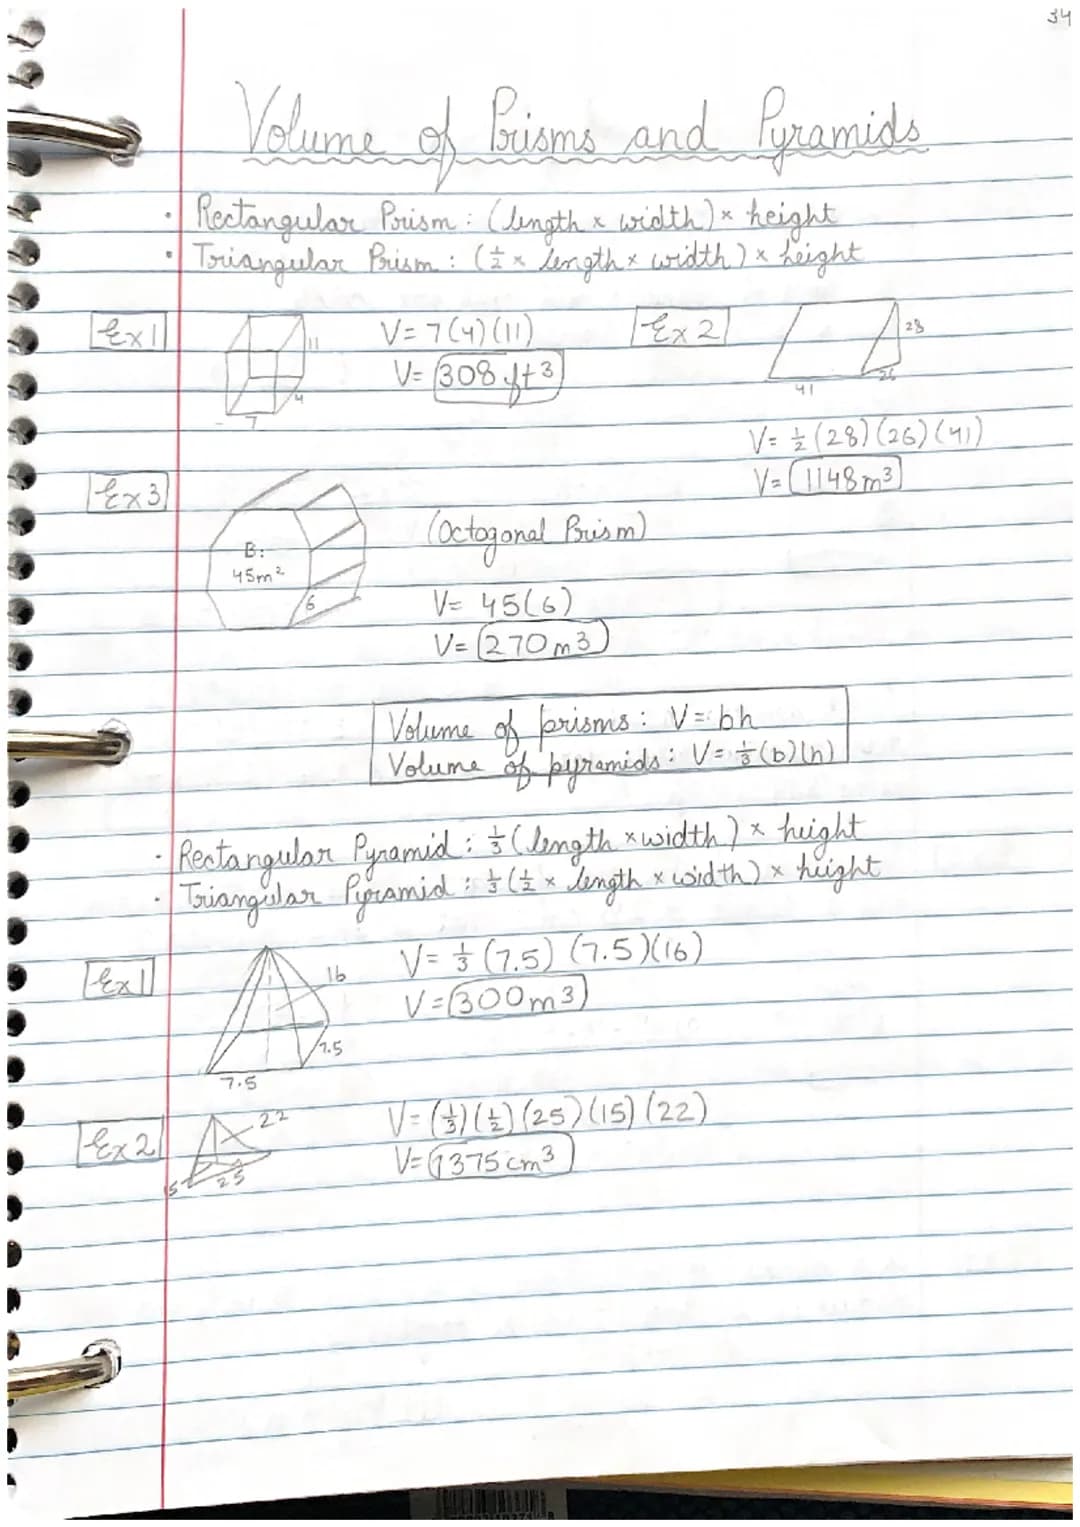 34
Volume of Prisms and Pyramids
• Rectangular Prism: (length x width) x height
• Triangular Prism: (½ x length x width) x height
Ex 1
11
4
7
V= 7(4)(11)
V= 308 ft3
Ex 2
28
26
41
V= ½ (28)(26)(41)
V= 1148 m3
Ex 3
B:
45m²
6
(Octogonal Prism)
V= 45(6)
V= 270 m3
Volume of prisms: V= bh
Volume of pyramids: V= ⅓(b)(h)
• Rectangular Pyramid: ⅓(length x width) x height
• Triangular Pyramid: ⅓(½ x length x width) x height
Ex 1
16
7.5
7.5
V= ⅓ (7.5) (7.5)(16)
V= 300 m3
Ex 2
22
25
V= (⅓)(½)(25)(15)(22)
V= 1375 cm3